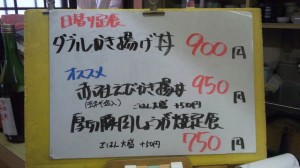 日替り定食
ダブルかき揚げ丼 900円
オススメ
赤社えびかき揚丼 950円
ごはん大盛 +50円
厚切豚肉しょうが焼定食
ごはん大盛 +50円 750円